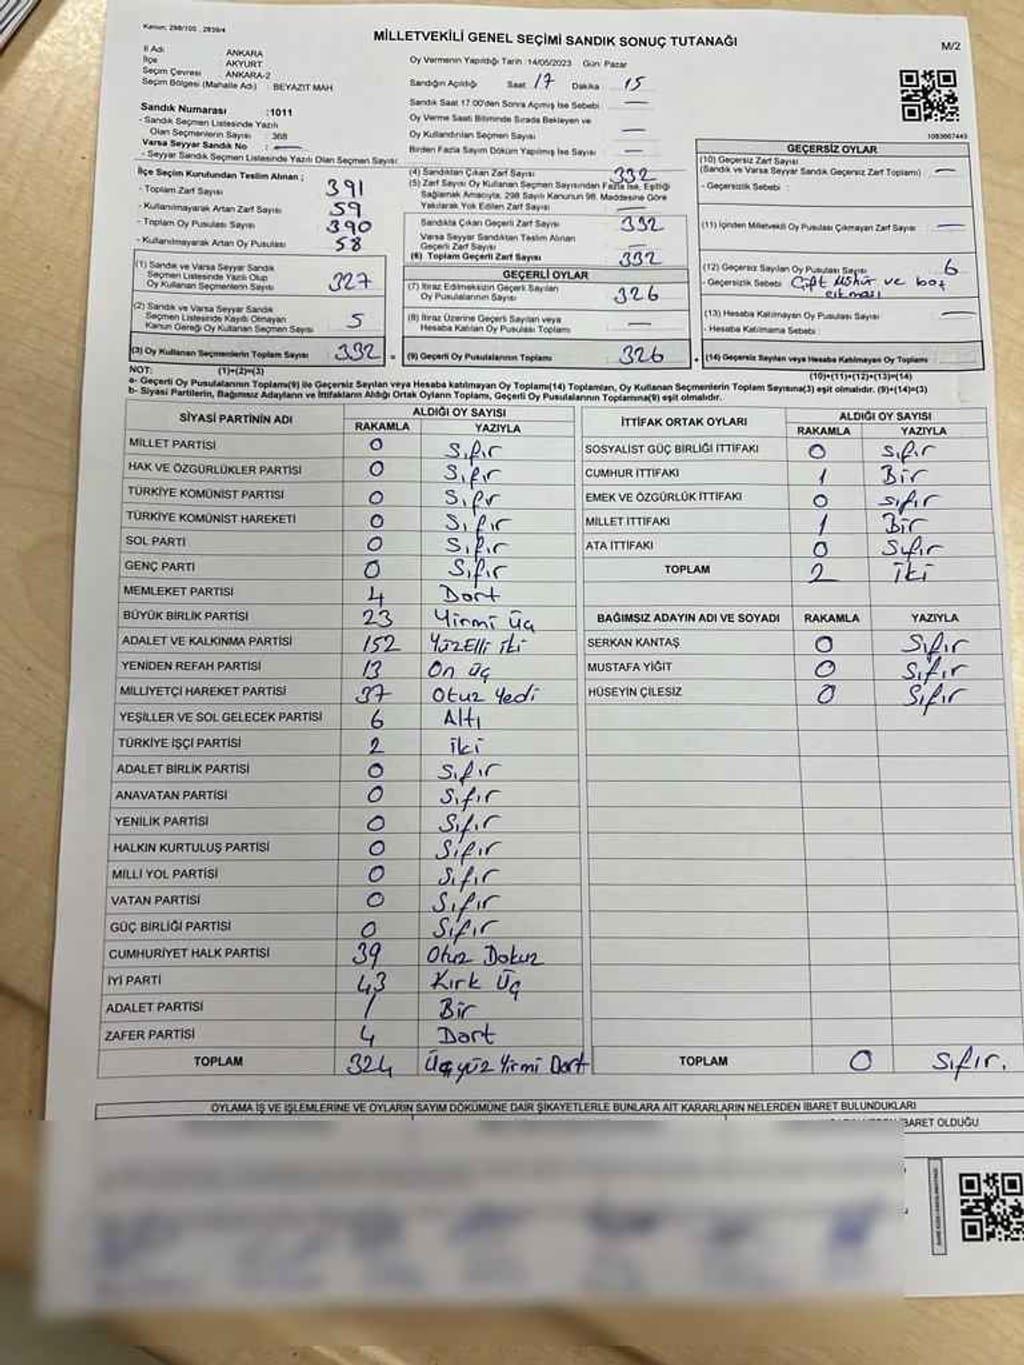 Kanun: 298/105 , 2839/4
MİLLETVEKİLİ GENEL SEÇİMİ SANDIK SONUÇ TUTANAĞI
M/2
İl Adı ANKARA
İlçe AKYURT
Seçim Çevresi ANKARA-2
Seçim Bölgesi (Mahalle Adı) BEYAZIT MAH
Sandık Numarası :1011
- Sandık Seçmen Listesinde Yazılı
Olan Seçmenlerin Sayısı : 368
Varsa Seyyar Sandık No : —
- Seyyar Sandık Seçmen Listesinde Yazılı Olan Seçmen Sayısı:
Oy Vermenin Yapıldığı Tarih :14/05/2023 Gün: Pazar
Sandığın Açıldığı Saat 17 Dakika : 15
Sandık Saat 17:00'den Sonra Açmış İse Sebebi : —
Oy Verme Saati Bitiminde Sırada Bekleyen ve
Oy Kullandırılan Seçmen Sayısı : —
Birden Fazla Sayım Döküm Yapılmış İse Sayısı : —
1083667443
İlçe Seçim Kurulundan Teslim Alınan ;
- Toplam Zarf Sayısı : 391
- Kullanılmayarak Artan Zarf Sayısı : 59
- Toplam Oy Pusulası Sayısı : 390
- Kullanılmayarak Artan Oy Pusulası : 58
(1) Sandık ve Varsa Seyyar Sandık
Seçmen Listesinde Yazılı Olup
Oy Kullanan Seçmenlerin Sayısı : 327
(2) Sandık ve Varsa Seyyar Sandık
Seçmen Listesinde Kayıtlı Olmayan
Kanun Gereği Oy Kullanan Seçmen Sayısı : 5
(3) Oy Kullanan Seçmenlerin Toplam Sayısı : 332 =
(4) Sandıktan Çıkan Zarf Sayısı : 332
(5) Zarf Sayısı Oy Kullanan Seçmen Sayısından Fazla İse, Eşitliği
Sağlamak Amacıyla, 298 Sayılı Kanunun 98. Maddesine Göre
Yakılarak Yok Edilen Zarf Sayısı : —
Sandıkta Çıkan Geçerli Zarf Sayısı : 332
Varsa Seyyar Sandıktan Teslim Alınan
Geçerli Zarf Sayısı : —
(6) Toplam Geçerli Zarf Sayısı : 332
GEÇERLİ OYLAR
(7) İtiraz Edilmeksizin Geçerli Sayılan
Oy Pusulalarının Sayısı : 326
(8) İtiraz Üzerine Geçerli Sayılan veya
Hesaba Katılan Oy Pusulası Toplamı : —
(9) Geçerli Oy Pusulalarının Toplamı : 326 +
GEÇERSİZ OYLAR
(10) Geçersiz Zarf Sayısı
(Sandık ve Varsa Seyyar Sandık Geçersiz Zarf Toplamı) : —
- Geçersizlik Sebebi :
(11) İçinden Milletvekili Oy Pusulası Çıkmayan Zarf Sayısı : —
(12) Geçersiz Sayılan Oy Pusulası Sayısı : 6
- Geçersizlik Sebebi : Çift Mühür ve boş
çıkması
(13) Hesaba Katılmayan Oy Pusulası Sayısı : —
- Hesaba Katılmama Sebebi :
(14) Geçersiz Sayılan veya Hesaba Katılmayan Oy Toplamı :
NOT: (1)+(2)=(3) (10)+(11)+(12)+(13)=(14)
a- Geçerli Oy Pusulalarının Toplamı(9) ile Geçersiz Sayılan veya Hesaba katılmayan Oy Toplamı(14) Toplamları, Oy Kullanan Seçmenlerin Toplam Sayısına(3) eşit olmalıdır. (9)+(14)=(3)
b- Siyasi Partilerin, Bağımsız Adayların ve İttifakların Aldığı Ortak Oyların Toplamı, Geçerli Oy Pusulalarının Toplamına(9) eşit olmalıdır.
SİYASİ PARTİNİN ADI ALDIĞI OY SAYISI
RAKAMLA YAZIYLA
MİLLET PARTİSİ 0 Sıfır
HAK VE ÖZGÜRLÜKLER PARTİSİ 0 Sıfır
TÜRKİYE KOMÜNİST PARTİSİ 0 Sıfır
TÜRKİYE KOMÜNİST HAREKETİ 0 Sıfır
SOL PARTİ 0 Sıfır
GENÇ PARTİ 0 Sıfır
MEMLEKET PARTİSİ 4 Dort
BÜYÜK BİRLİK PARTİSİ 23 Yirmi Üç
ADALET VE KALKINMA PARTİSİ 152 Yüzelli iki
YENİDEN REFAH PARTİSİ 13 On üç
MİLLİYETÇİ HAREKET PARTİSİ 37 Otuz Yedi
YEŞİLLER VE SOL GELECEK PARTİSİ 6 Altı
TÜRKİYE İŞÇİ PARTİSİ 2 iki
ADALET BİRLİK PARTİSİ 0 Sıfır
ANAVATAN PARTİSİ 0 Sıfır
YENİLİK PARTİSİ 0 Sıfır
HALKIN KURTULUŞ PARTİSİ 0 Sıfır
MİLLİ YOL PARTİSİ 0 Sıfır
VATAN PARTİSİ 0 Sıfır
GÜÇ BİRLİĞİ PARTİSİ 0 Sıfır
CUMHURİYET HALK PARTİSİ 39 Otuz Dokuz
İYİ PARTİ 43 Kırk Üç
ADALET PARTİSİ 1 Bir
ZAFER PARTİSİ 4 Dort
TOPLAM 324 Üçyüz Yirmi Dort
İTTİFAK ORTAK OYLARI ALDIĞI OY SAYISI
RAKAMLA YAZIYLA
SOSYALİST GÜÇ BİRLİĞİ İTTİFAKI 0 Sıfır
CUMHUR İTTİFAKI 1 Bir
EMEK VE ÖZGÜRLÜK İTTİFAKI 0 sıfır
MİLLET İTTİFAKI 1 Bir
ATA İTTİFAKI 0 Sıfır
TOPLAM 2 iki
BAĞIMSIZ ADAYIN ADI VE SOYADI RAKAMLA YAZIYLA
SERKAN KANTAŞ 0 Sıfır
MUSTAFA YİĞİT 0 Sıfır
HÜSEYİN ÇİLESİZ 0 Sıfır
TOPLAM 0 Sıfır.
OYLAMA İŞ VE İŞLEMLERİNE VE OYLARIN SAYIM DÖKÜMÜNE DAİR ŞİKAYETLERLE BUNLARA AİT KARARLARIN NELERDEN İBARET BULUNDUKLARI
BARET OLDUĞU